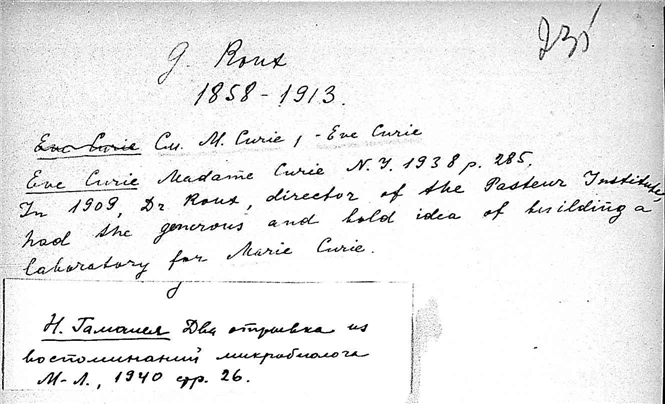 235
G. Roux
1858-1913.
Eve Curie См. M. Curie, - Eve Curie
Eve Curie Madame Curie N.Y. 1938 p. 285.
In 1909, Dr Roux, director of the Pasteur Institute,
had the generous and bold idea of building a
laboratory for Marie Curie.
Н. Гамалея Два отрывка из
воспоминаний микробиолога
М-Л., 1940 стр. 26.